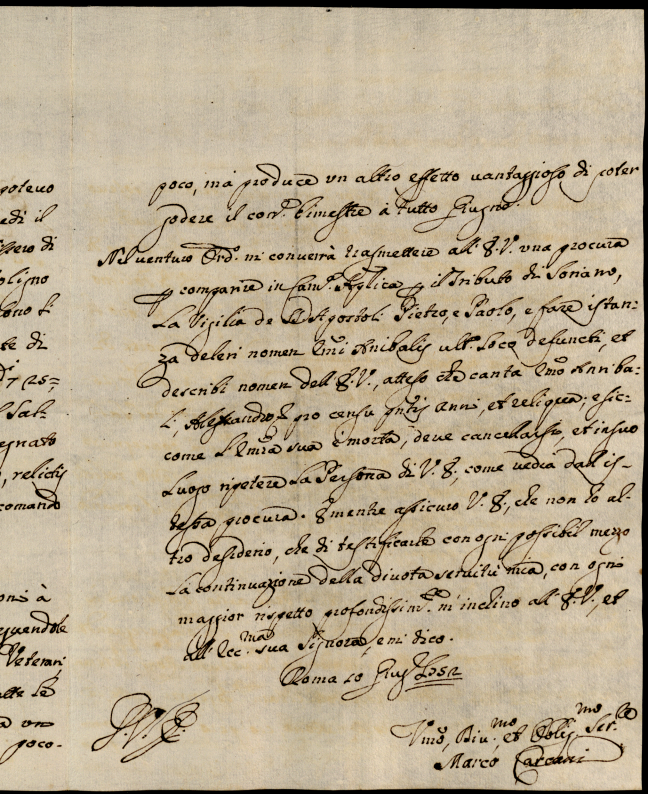 potevo
edi il
ltero di
oligno
te di
725=
Sal:
egnato
, relictis
comando
oni à
Veterani
a un
poco-
poco, mà produce un altro effetto vantaggioso di poter
godere il con.º bimestre à tutto Giugno.
Nel venturo Ord.º mi converrà trasmettere all' E.V. una procura
comparire in Cam.ª Ap̃lica il Tributo di Soriano,
La Vigilia de SS. Apostoli Pietro, e Paolo, e fare istan-
za deleri nomen Anibalis ult.º Loco defuncti, et
describi nomen dell' E.V., atteso che canta Annba-
li, Alessandro pro censu anni, et reliqua; e sic-
come sua è morta, deve cancellarsi, et in suo
Luogo ripetere La Persona di V.E., come vedrà dall' is-
tessa procura. E mentre assicuro V.E., che non hò al-
tro desiderio, che di testificarle con ogni possibil mezzo
La continuazione della divota servitù mia, con ogni
maggior rispetto profondissim.te m'inclino all' E.V., et
all' Ecc.ma sua Signora, e mi dico.
Roma 10 Giug.º
V.E.
Vmõ, Div.mo, et Oblig.mo Ser.re
Marco Carcani